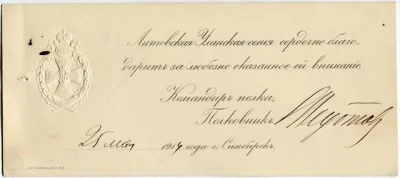 Литовская Уланская семья сердечно благо-
даритъ за любезно оказанное ей вниманіе.
Командиръ полка,
Полковникъ
25 мая 1914 года г. Симбирскъ.